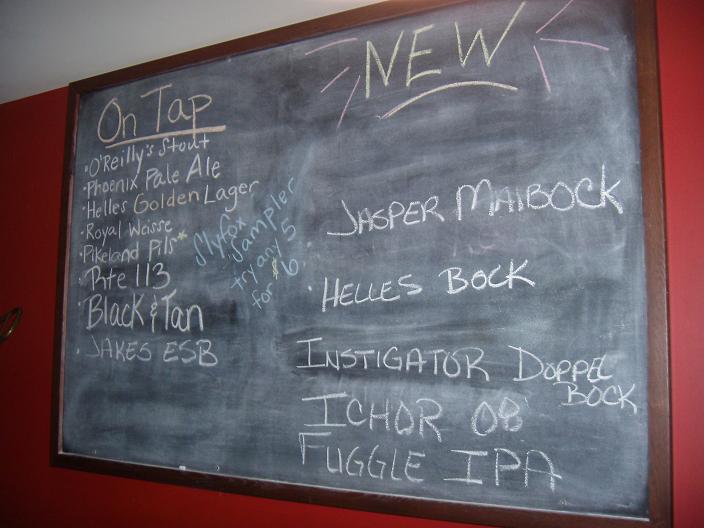 On Tap
• O'Reilly's Stout
• Phoenix Pale Ale
• Helles Golden Lager
• Royal Weisse
• Pikeland Pils*
• Rte 113
Black & Tan
• JAKES ESB
Slyfox
Sampler
try any 5
for $6.
NEW
JASPER MAIBOCK
• HELLES BOCK
INSTIGATOR DOPPEL
BOCK
ICHOR 08
FUGGLE IPA